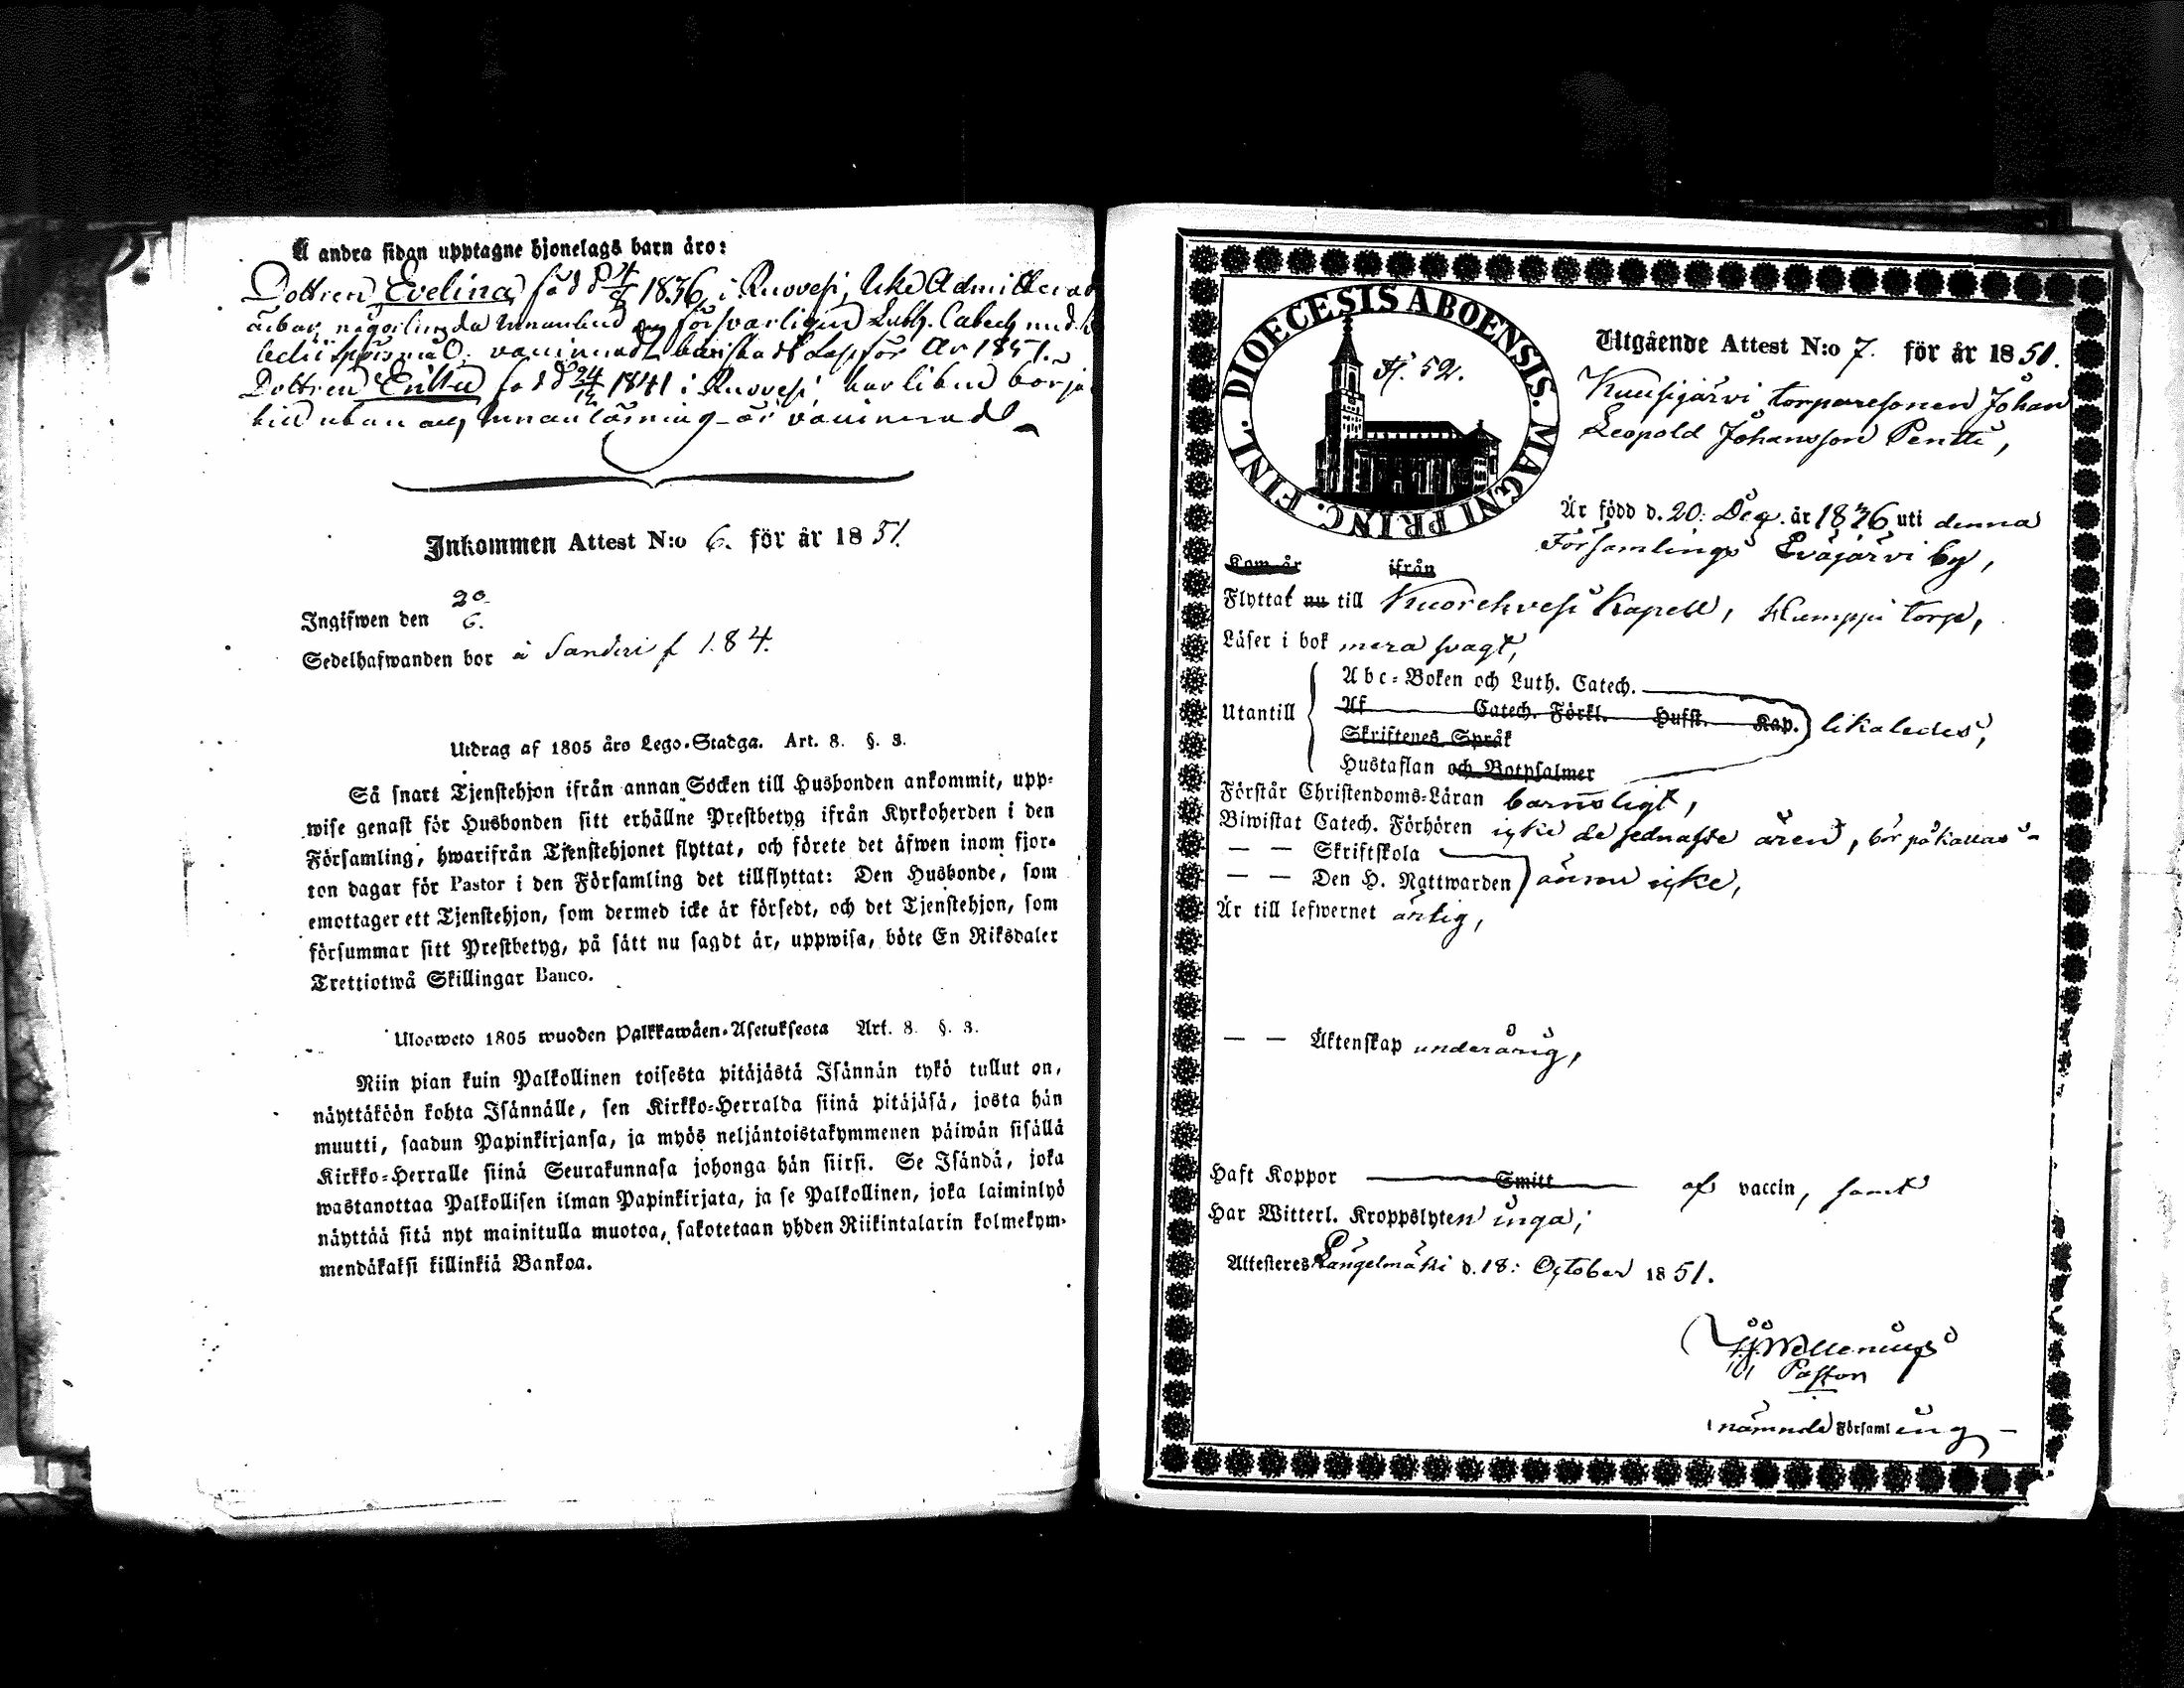 A andra sidan upptagne hjonelags barn äro:
Dottren Evelina född d 4/8 1836 i Ruovesi, Icke Admitterad
försvarligen Luth. Catech med
för År 1851.
Dottren Erika född 24/12 1841 i Ruovesi har liten börjat
utan och Innanläsning är vaccinerad
Inkommen Attest N:o 6. för år 1851.
Ingifwen den 20/6.
Sedelhafwanden bor å Sanderi f 184.
Utdrag af 1805 års Lego-Stadga. Art. 8. §. 3.
Så snart Tjenstehjon ifrån annan Socken till Husbonden ankommit, upp-
wise genast för Husbonden sitt erhållne Prestbetyg ifrån Kyrkoherden i den
Församling, hwarifrån Tjenstehjonet flyttat, och förete det äfwen inom fjor-
ton dagar för Pastor i den Församling det tillflyttat: Den Husbonde, som
emottager ett Tjenstehjon, som dermed icke är försedt, och det Tjenstehjon, som
försummar sitt Prestbetyg, på sätt nu sagdt är, uppwisa, böte En Riksdaler
Trettiotwå Skillingar Banco.
Ulosweto 1805 wuoden Palkkawäen-Asetuksesta Art. 8. §. 3.
Niin pian kuin Palkollinen toisesta pitäjästä Isännän tykö tullut on,
näyttäköön kohta Isännälle, sen Kirkko-Herralda siinä pitäjäsä, josta hän
muutti, saadun Papinkirjansa, ja myös neljäntoistakymmenen päiwän sisällä
Kirkko-Herralle siinä Seurakunnasa johonga hän siirsi. Se Isändä, joka
wastanottaa Palkollisen ilman Papinkirjata, ja se Palkollinen, joka laiminlyö
näyttää sitä nyt mainitulla muotoa, sakotetaan yhden Riikintalarin kolmekym-
mendäkaksi killinkiä Bankoa.
DIOECESIS ABOENSIS. MAGNI PRINC. FINL.
52.
Utgående Attest N:o 7. för år 1851.
Kuusijärvi torparesonen Johan
Leopold Johansson Pentti,
Är född d. 20: Dec. år 1836 uti denna
Församlings Eväjärvi by,
Kom år ifrån
Flyttat nu till Kuorehvesi Kapell, Kumppu torp,
Läser i bok mera svagt,
Utantill
Abc-Boken och Luth. Catech.
Af Catech. Förkl. Hufst. Kap.
likaledes,
Skriftenes Språk
Hustaflan och Botpsalmer
Förstår Christendoms-Läran barnsligt,
Biwistat Catech. Förhören icke de sednaste åren, bör påkallas
— — Skriftskola
— — Den H. Nattwarden ännu icke,
Är till lefwernet ärlig,
— — Äktenskap underårig,
Haft Koppor Smitt af vaccin, samt
Har Witterl. Kroppslyten inga;
Attesteres Längelmäki d. 18: October 1851.
Wallenius
Pastor
i nämnde Församling